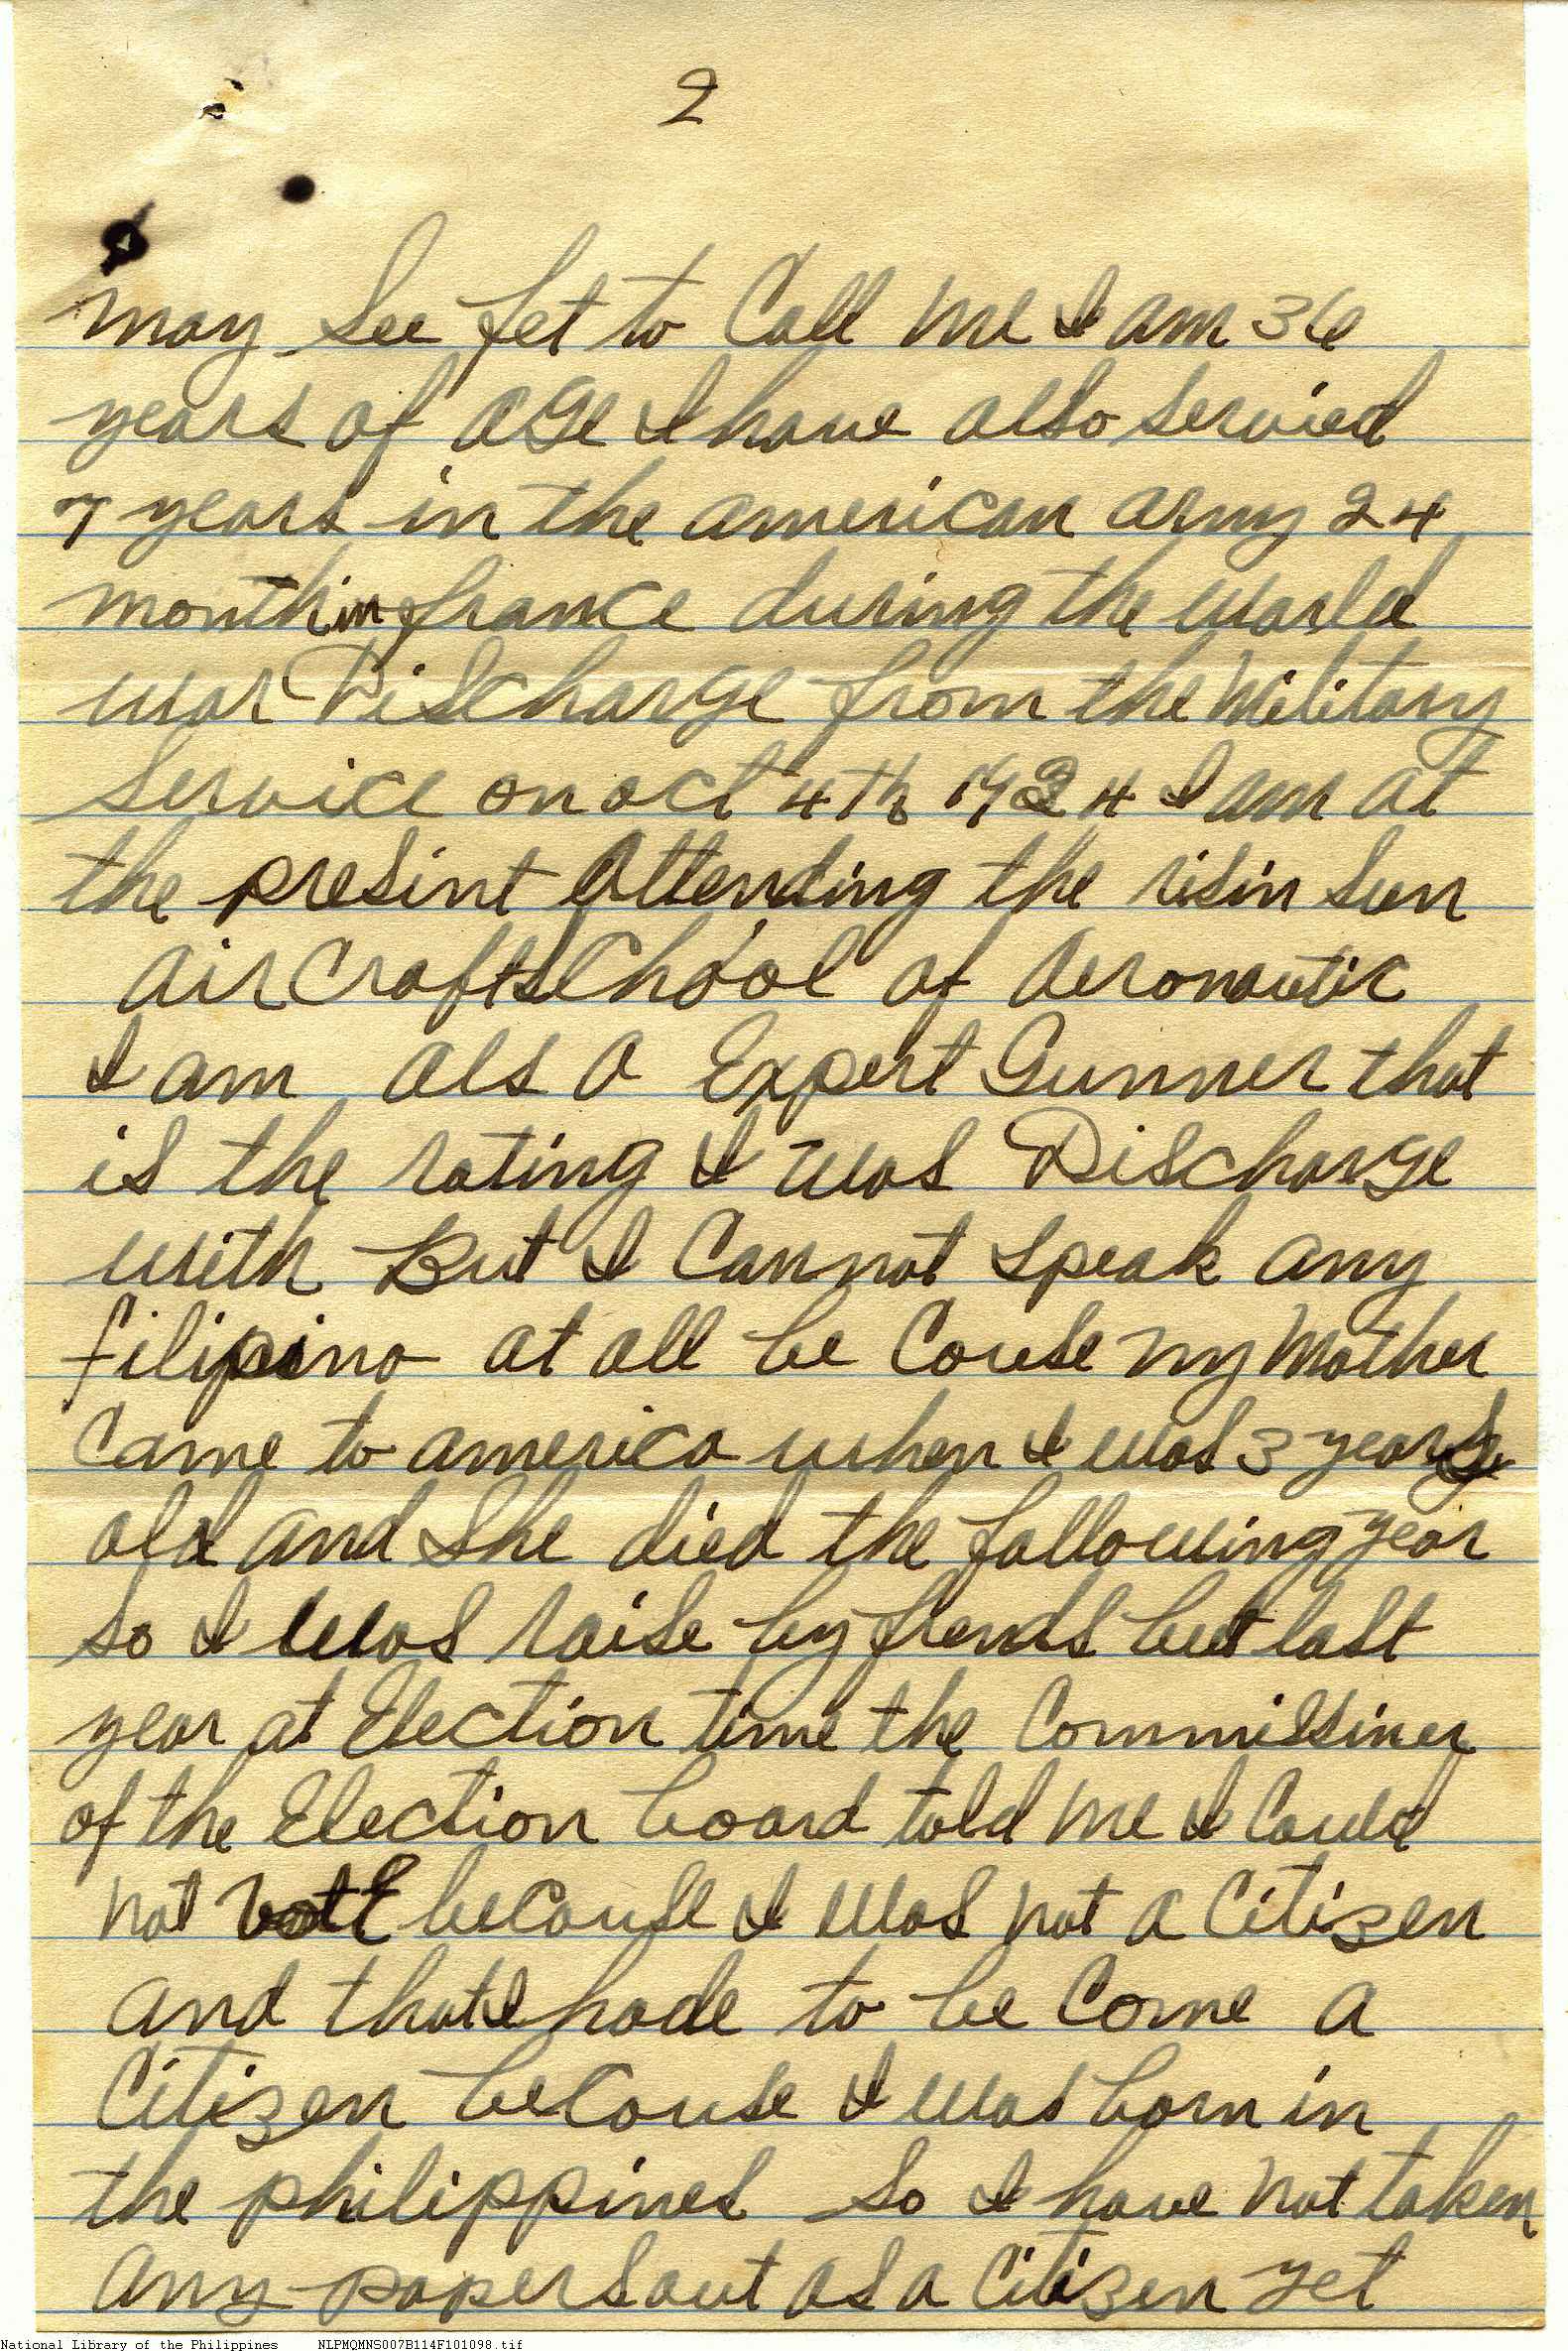 2
may see fet to Call me I am 36
years of age I have also servied
7 years in the american army 24
month in france during the world
war Discharge from the Military
service on oct 4th 1924 I am at
the presint Attending the risin sun
air Craft School of Aeronautic
I am also Expert Gunner that
is the rating I was Discharge
with But I Cannot speak any
filipino at all be Couse my Mother
Came to america when I was 3 years
old and She died the following year
so I was raise by frends but last
year at Election time the Commissiner
of the Election board told me I Could
not votE because I was not a Citizen
and that I hade to be Come a
Citizen beCouse I was born in
the philippines so I have not taken
any papers out as a Citizen yet
National Library of the Philippines NLPMQMNS007B114F101098.tif